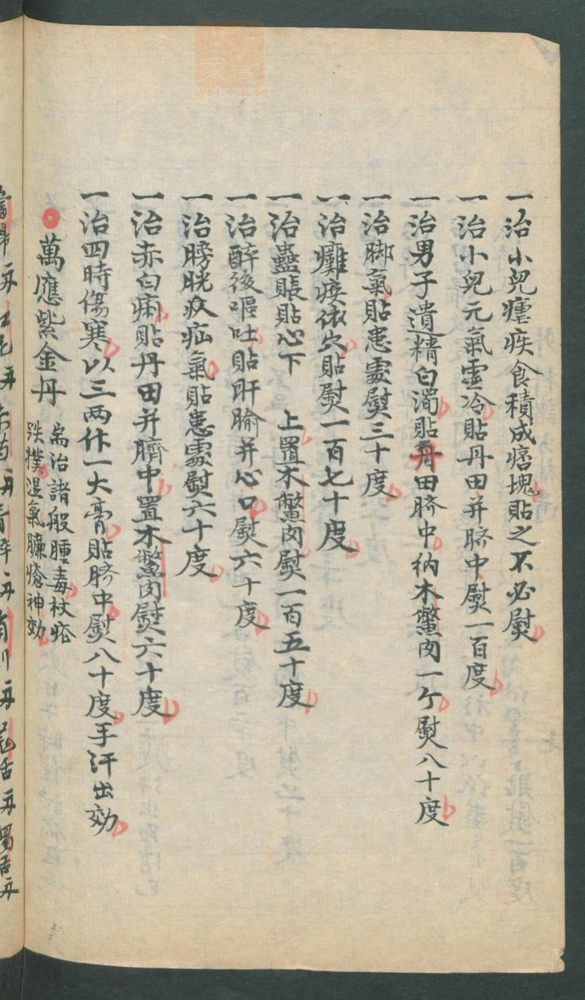 一治小兒瘧疾食積成痞塊貼之不必熨
一治小兒元氣虛冷貼丹田并脐中熨一百度
一治男子遺精白濁貼丹田脐中納木鱉肉一个熨八十度
一治脚氣貼患處熨三十度
一治癱瘓依穴貼熨一百七十度
一治蠱脹貼心下 上置木鱉肉熨一百五十度
一治醉後嘔吐貼肝腧并心口熨六十度
一治膀胱疝氣貼患處熨六十度
一治赤白痢貼丹田并臍中置木鱉肉熨六十度
一治四時傷寒以三两作一大膏貼脐中熨八十度手汗出効
萬應紫金丹
耑治諸般腫毒杖瘡
跌撲湿氣臁瘡神効